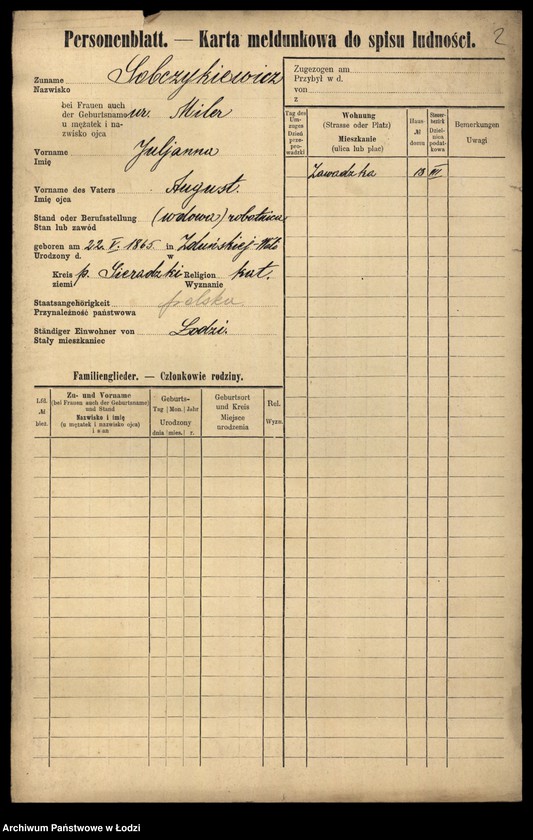 2
Personenblatt. — Karta meldunkowa do spisu ludności.
Zuname Sobczykiewicz
Nazwisko
bei Frauen auch
der Geburtsname ur. Miler
u mężatek i na-
zwisko ojca
Vorname Juljanna
Imię
Vorname des Vaters August.
Imię ojca
Stand oder Berufsstellung (wdowa) robotnica
Stan lub zawód
geboren am 22. V. 1865 in Zduńskiej-Woli
Urodzony d. w
Kreis p. Sieradzki Religion kat.
ziemi Wyznanie
Staatsangehörigkeit polska
Przynależność państwowa
Ständiger Einwohner von Łodzi.
Stały mieszkaniec
Familienglieder. — Członkowie rodziny.
Lfd. № bież.
Zu- und Vorname
(bei Frauen auch der Geburtsname)
und Stand
Nazwisko i imię
(u mężatek i nazwisko ojca)
i stan
Geburts-
Tag | Mon. | Jahr
Urodzony
dnia | mies. | r.
Geburtsort
und Kreis
Miejsce
urodzenia
Rel.
Wyzn.
Zugezogen am
Przybył w d.
von
z
Tag des
Um-
zuges
Dzień
prze-
prowadzki
Wohnung
(Strasse oder Platz)
Mieszkanie
(ulica lub plac)
Haus-
№
domu
Steuer-
bezirk
Dziel-
nica
podat-
kowa
Bemerkungen
Uwagi
Zawadzka 18 III.
Archiwum Państwowe w Łodzi